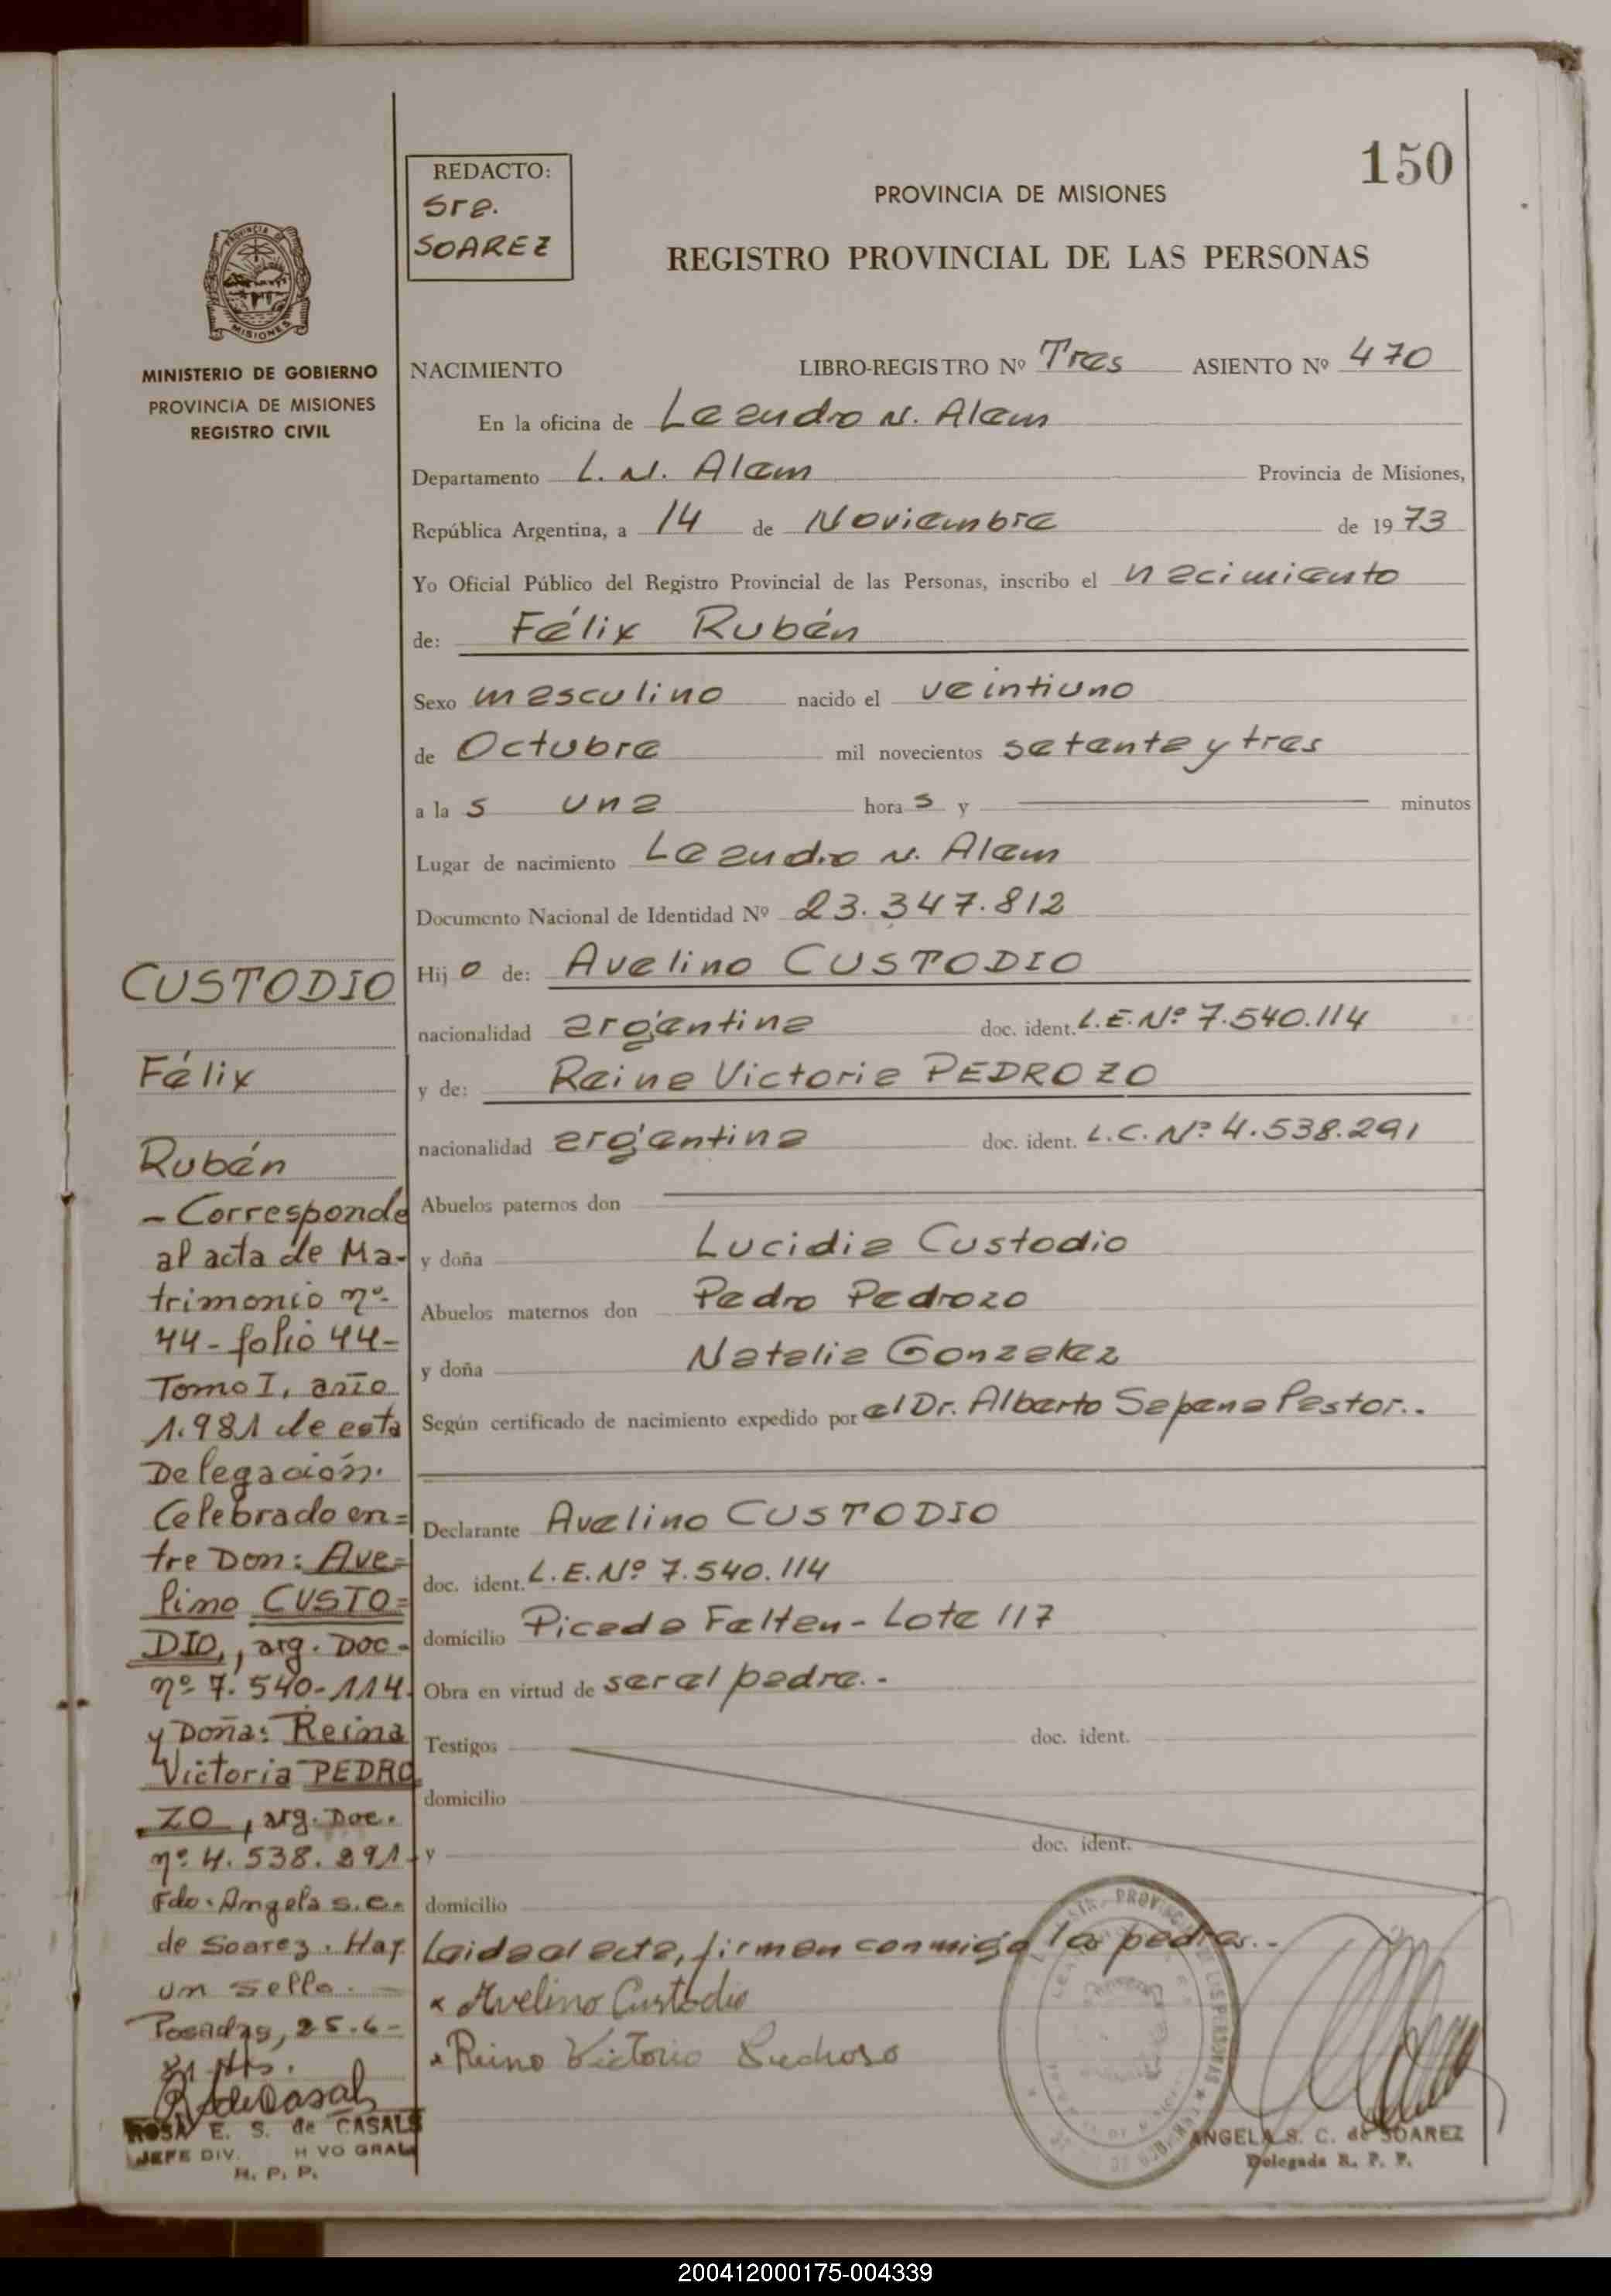 150
REDACTO:
Sra.
SOAREZ
PROVINCIA DE MISIONES
REGISTRO PROVINCIAL DE LAS PERSONAS
MISIONES
MINISTERIO DE GOBIERNO
PROVINCIA DE MISIONES
REGISTRO CIVIL
NACIMIENTO LIBRO-REGISTRO Nº Tres ASIENTO Nº 470
En la oficina de Leandro N. Alem
Departamento L. N. Alem Provincia de Misiones,
República Argentina, a 14 de Noviembre de 1973
Yo Oficial Público del Registro Provincial de las Personas, inscribo el nacimiento
de: Félix Rubén
Sexo masculino nacido el veintiuno
de Octubre mil novecientos setenta y tres
a las una horas y minutos
Lugar de nacimiento Leandro N. Alem
Documento Nacional de Identidad Nº 23.347.812
Hijo de: Avelino CUSTODIO
nacionalidad argentina doc. ident. L.E.Nº 7.540.114
y de: Reina Victoria PEDROZO
nacionalidad argentina doc. ident. L.C.Nº 4.538.291
Abuelos paternos don
y doña Lucidia Custodio
Abuelos maternos don Pedro Pedrozo
y doña Natalia Gonzalez
Según certificado de nacimiento expedido por el Dr. Alberto Sapena Pastor..
Declarante Avelino CUSTODIO
doc. ident. L.E.Nº 7.540.114
domicilio Picada Falten - Lote 117
Obra en virtud de ser el padre.-
Testigos doc. ident.
domicilio
y doc. ident.
domicilio
Leida el acta, firman conmigo los padres..-
x Avelino Custodio
x Reina Victoria Pedroso
ANGELA S. C. de SOAREZ
Delegada R. P. P.
CUSTODIO
Félix
Rubén
- Corresponde
al acta de Ma-
trimonio nº
44 - folio 44 -
Tomo I, año
1.981 de esta
Delegación.
Celebrado en=
tre Don: Ave=
lino CUSTO=
DIO,, arg. Doc-
nº 7.540-114.
y Doña: Reina
Victoria PEDRO
ZO, arg. Doc.
nº 4.538.291-
Fdo. Angela S.C.
de Soarez. Hay
un sello.
Posadas, 25-6-
81
ROSA E. S. de CASALS
JEFE DIV. H VO GRAL
R. P. P.
200412000175-004339